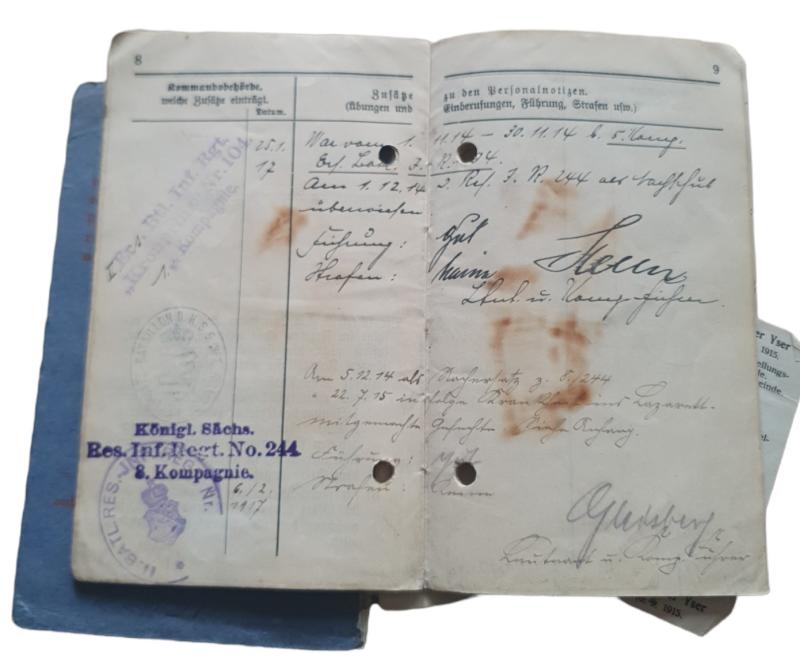 8
9
Kommandobehörde,
welche Zusätze einträgt.
Datum.
Zusätze zu den Personalnotizen.
(Übungen und Einberufungen, Führung, Strafen usw.)
25.1.
17
War vom 1. 11.14 – 30.11.14 b. 5. Komp.
Ers. Batl. J. R.
Am 1.12.14 z. Res. J. R. 244 als Nachschub
überwiesen
Führung: Gut
Strafen: Keine
Ltnt. u. Komp. Führer.
Ers. Btl. Inf. Rgt.
"Kronprinz" Nr. 104.
1. Kompagnie.
Am 5.12.14 als Nachersatz z. 8./244
" 22.7.15 infolge Krankheit ins Lazarett
mitgemachte Gefechte siehe Anhang.
Führung: Gut
Strafen: Keine
Königl. Sächs.
Res. Inf. Regt. No. 244
8. Kompagnie.
6./2.
1917
Leutnant u. Komp. Führer
II. BATL. RES. Nr.
er Yser
1915.
Yser
1915.